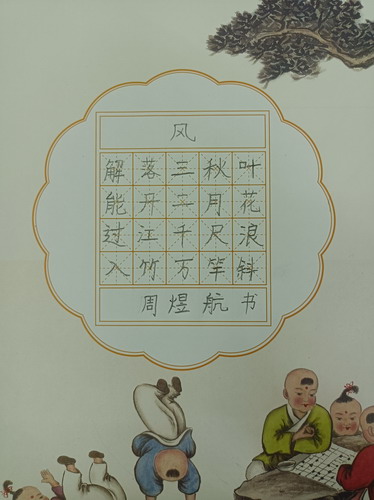 风
解落三秋叶
能开二月花
过江千尺浪
入竹万竿斜
周煜航书